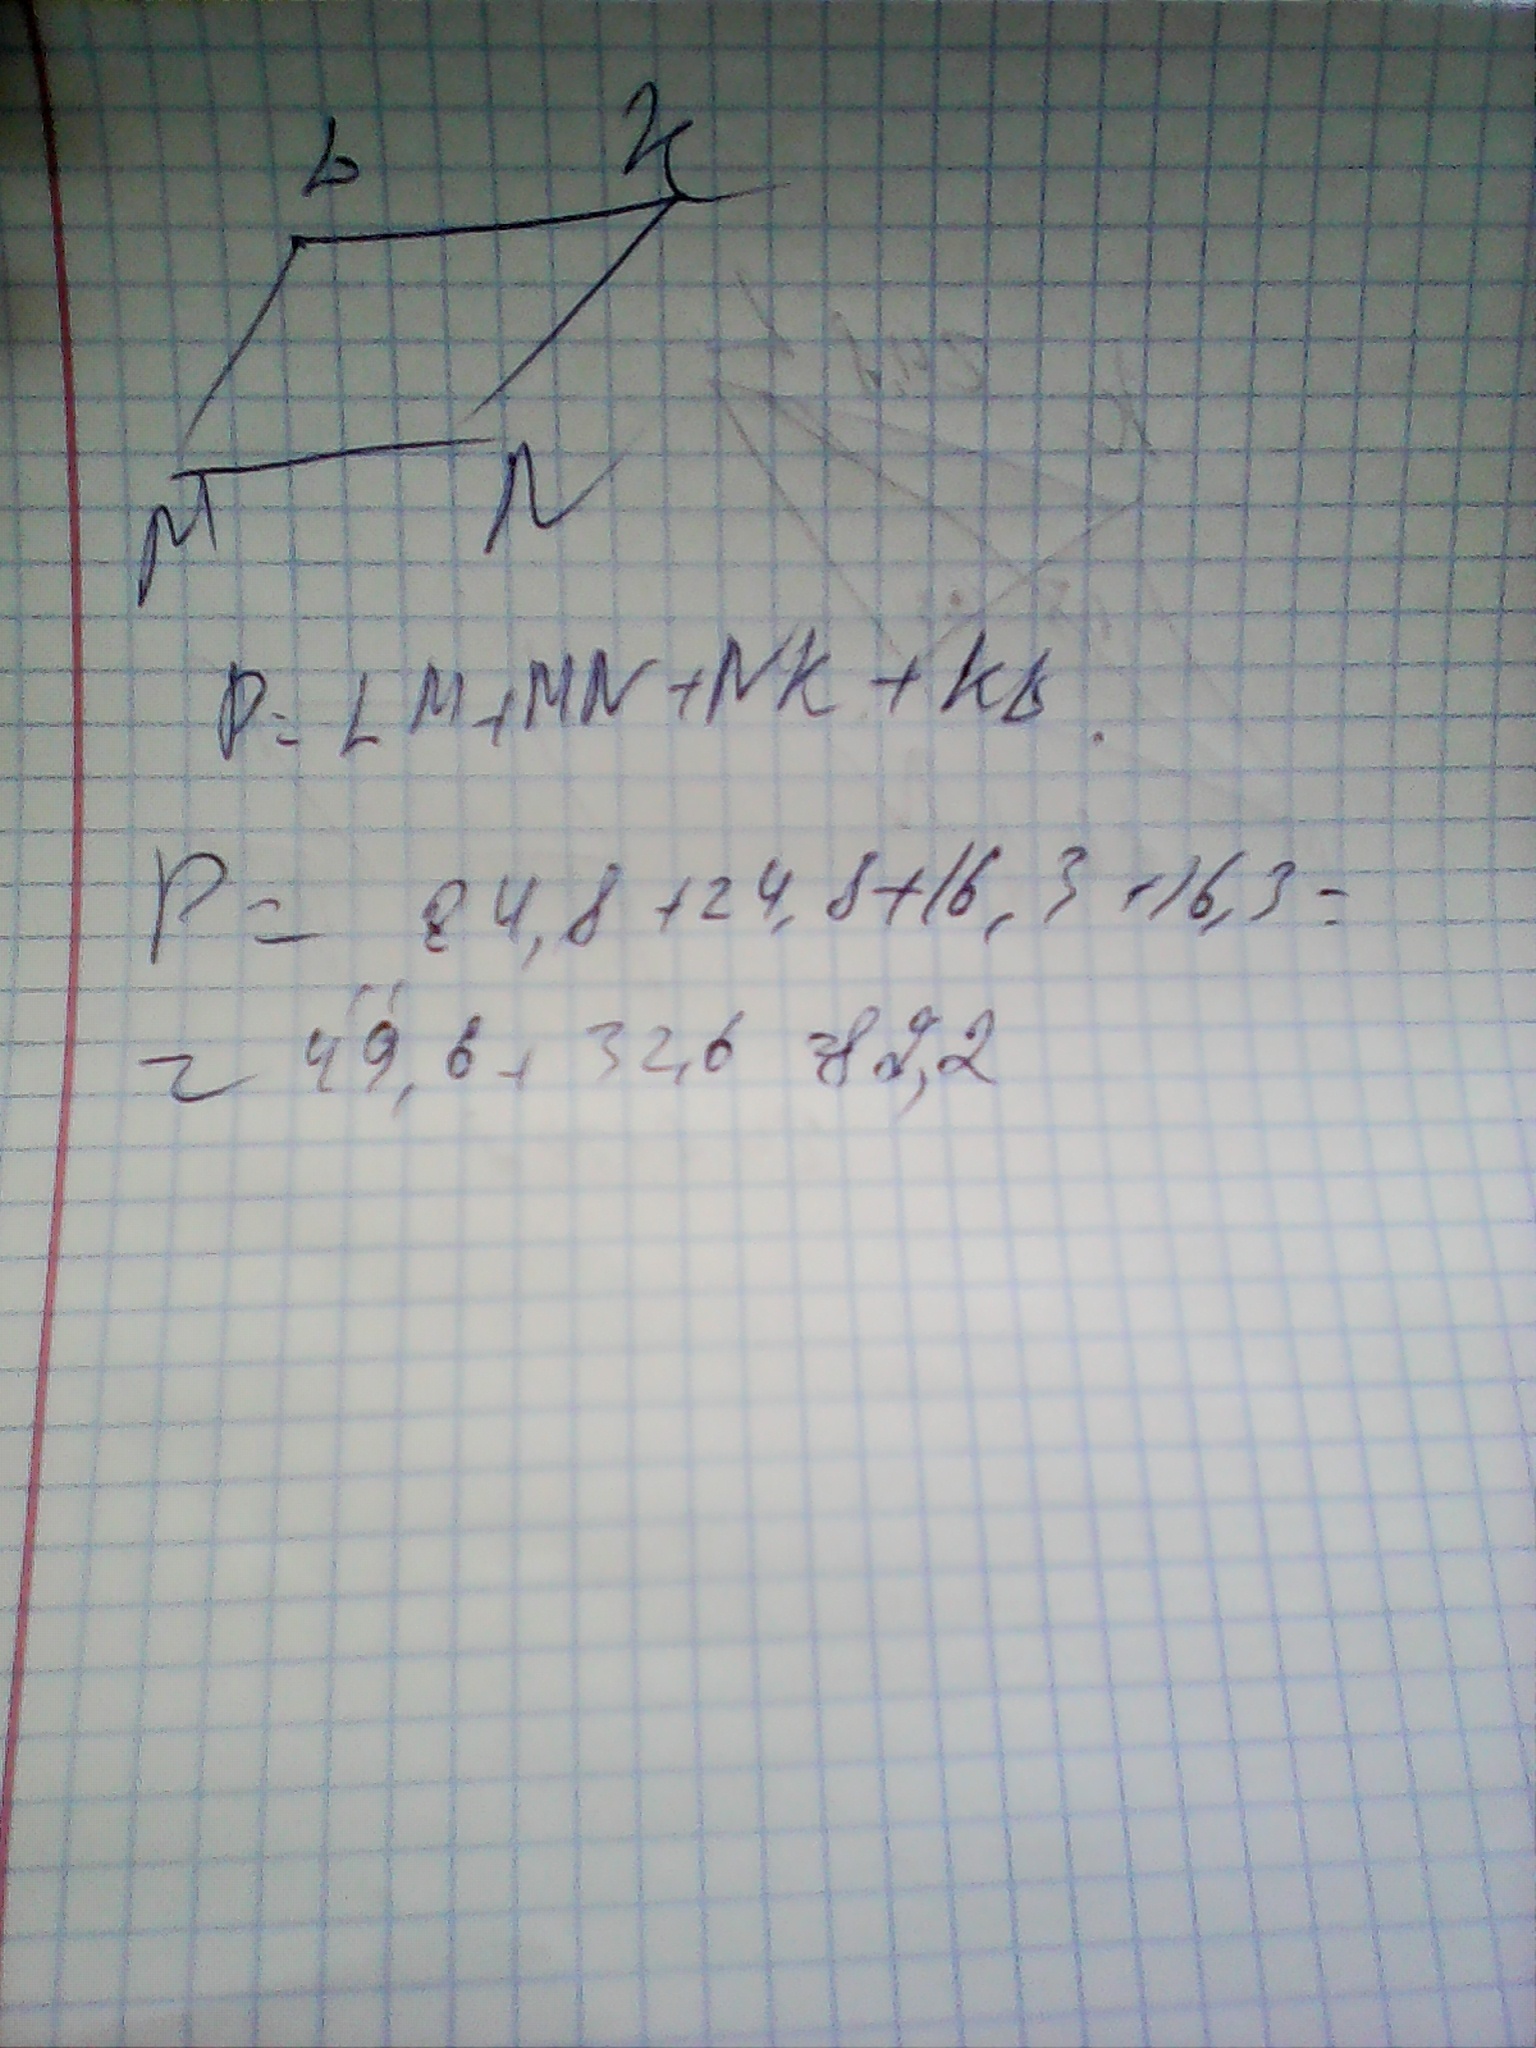 L K
M N
P = LM + MN + NK + KL.
P = 24,8 + 24,8 + 16,3 + 16,3 =
= 49,6 + 32,6 = 82,2